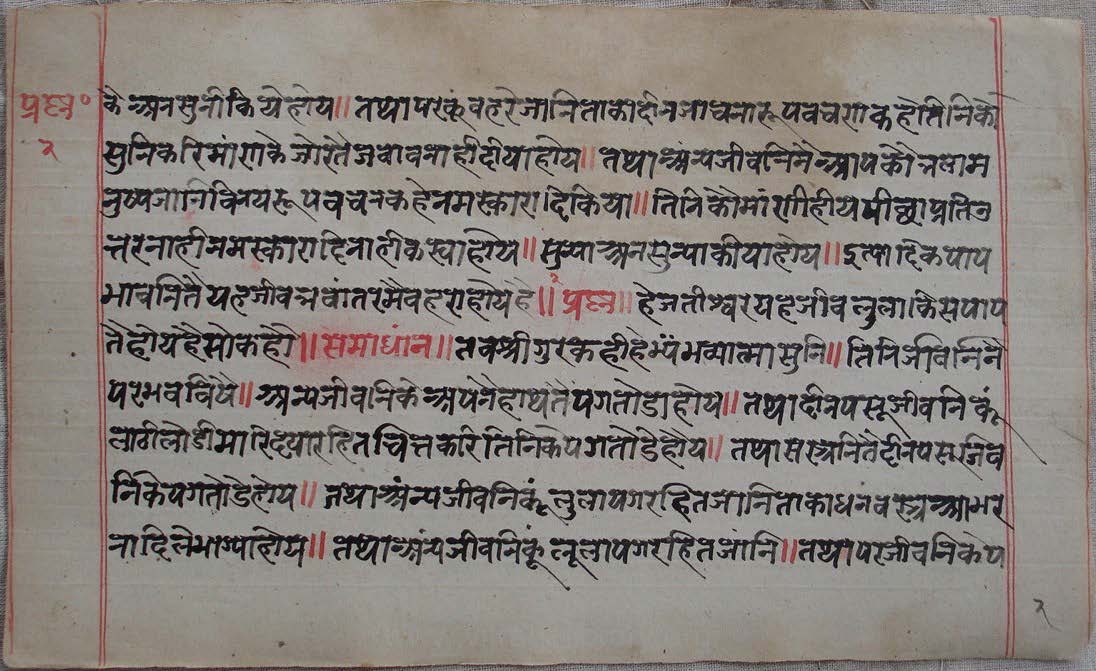 प्रश्न॰
२
के अनसुनी किये होय॥ तथा परकूं बहरे जानि ताकों दीन जाचना रूप वचरा कहे तिनिको
सुनि करि मांराके जोरतै जवाब नाही दीया होय॥ तथा अंन्य जीवनिनै आपकौ भला म
नुष्य जानि विनय रूप वचन कहे नमस्कारादि किया॥ तिनिकौ मांरा ही य पीछा प्रति उ
त्तर नाही नमस्कारादि नाही कस्या होय॥ सुन्या अनसुन्या कीया होय॥ इत्यादिक पाप
भावनितै यह जीव भवांतरमै बहरा होय है॥ २ प्रश्न॥ हे जतीश्वर यह जीव लुला किस पाप
तै होय है सो कहौ॥ समाधांन॥ तब श्रीगुर कही हे भ्यंभव्यात्मा सुनि॥ तिनि जीवनिनै
परभव विषै॥ अन्य जीवनिके अपनै हाथतै पग तोडा होय॥ तथा दीन पसू जीवनिकूं
लाठी लोडी मारि दया रहित चित्त करि तिनिके पग तोडे होय॥ तथा सस्त्रनितै दीन पसू जीव
निके पग तोडे होय॥ तथा अंन्य जीवनिकूं लुला पग रहित जानि ताका धन वस्त्र आभर
नादि ले भाग्या होय॥ तथा अंन्य जीवनिकूं लूला पग रहित जांनि॥ तथा पर जीवनिके प
२